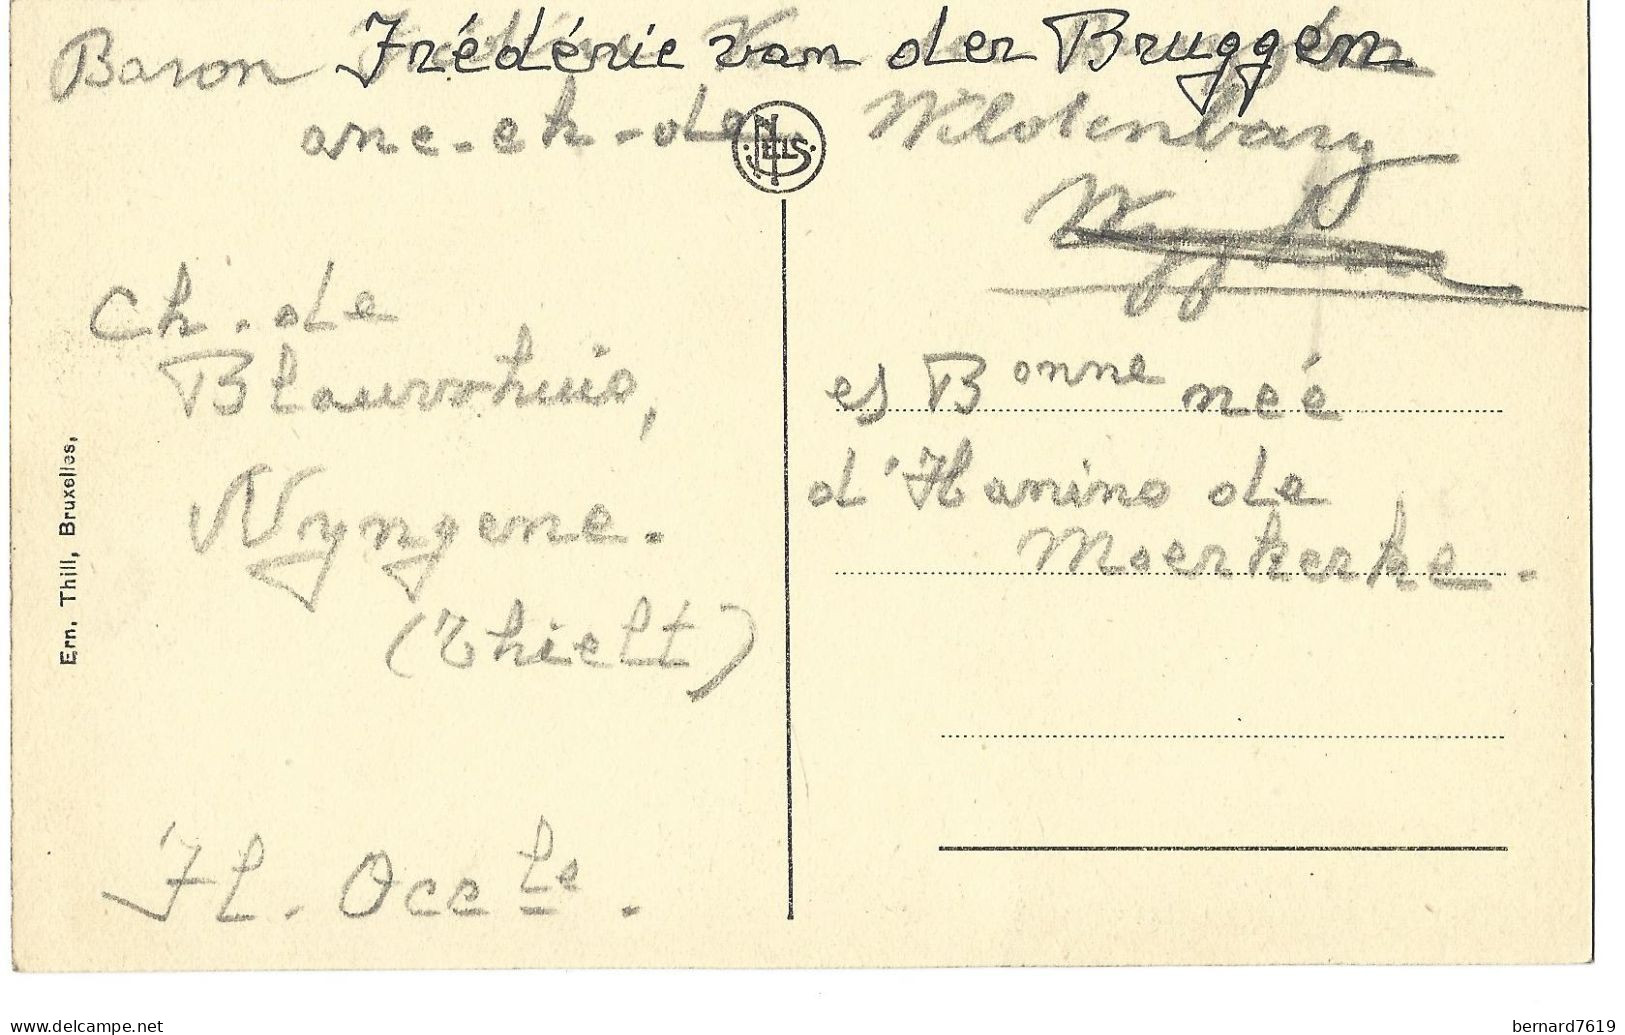 Baron Frédéric van der Bruggen
anc. ch. de Wildenburg
NELS
Ch. de
Blauwhuis,
Wyngene.
(Thielt)
Fl. Occ le.
et Bonne née
d'Hanins de
Moerkerke.
Ern. Thill, Bruxelles,
www.delcampe.net
bernard7619